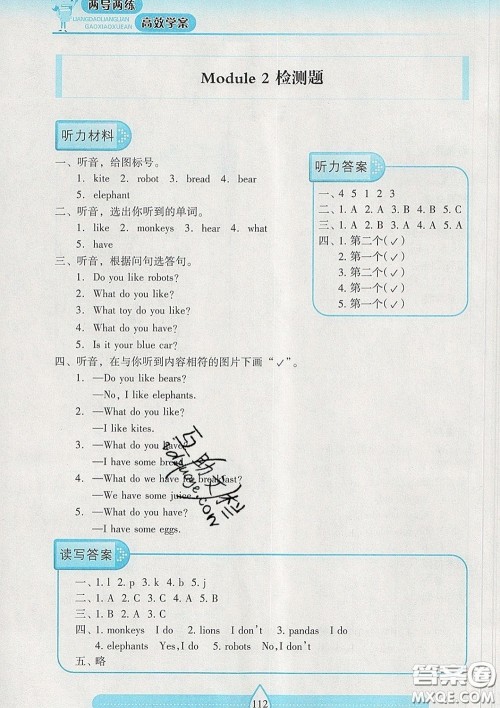 两导两练
LIANGDAOLIANGLIAN
GAOXIAOXUEAN
高效学案
Module 2 检测题
听力材料
一、听音，给图标号。
1. kite 2. robot 3. bread 4. bear
5. elephant
二、听音，选出你听到的单词。
1. like 2. monkeys 3. hear 4. what
5. have
三、听音，根据问句选答句。
1. Do you like robots?
2. What do you like?
3. What toy do you like?
4. What do you have?
5. Is it your blue car?
四、听音，在与你听到内容相符的图片下画“✓”。
1. —Do you like bears?
—No, I like elephants.
2. —What do you like?
—I like kites.
3. —What do you have?
—I have some bread.
4. —What do we have for breakfast?
—We have some juice.
5. —What do you have?
—I have some eggs.
听力答案
一、4 5 1 2 3
二、1. A 2. A 3. B 4. B 5. C
三、1. A 2. B 3. A 4. A 5. A
四、1. 第二个(✓)
2. 第一个(✓)
3. 第二个(✓)
4. 第一个(✓)
5. 第一个(✓)
读写答案
一、1. l 2. p 3. k 4. b 5. j
二、1. A 2. C 3. C 4. B 5. A
三、1. B 2. A 3. C
四、1. monkeys I do 2. lions I don't 3. pandas I do
4. elephants Yes, I do 5. robots No, I don't
五、略
112
互助文档
edpuase.com
答案圈
MXQE.COM